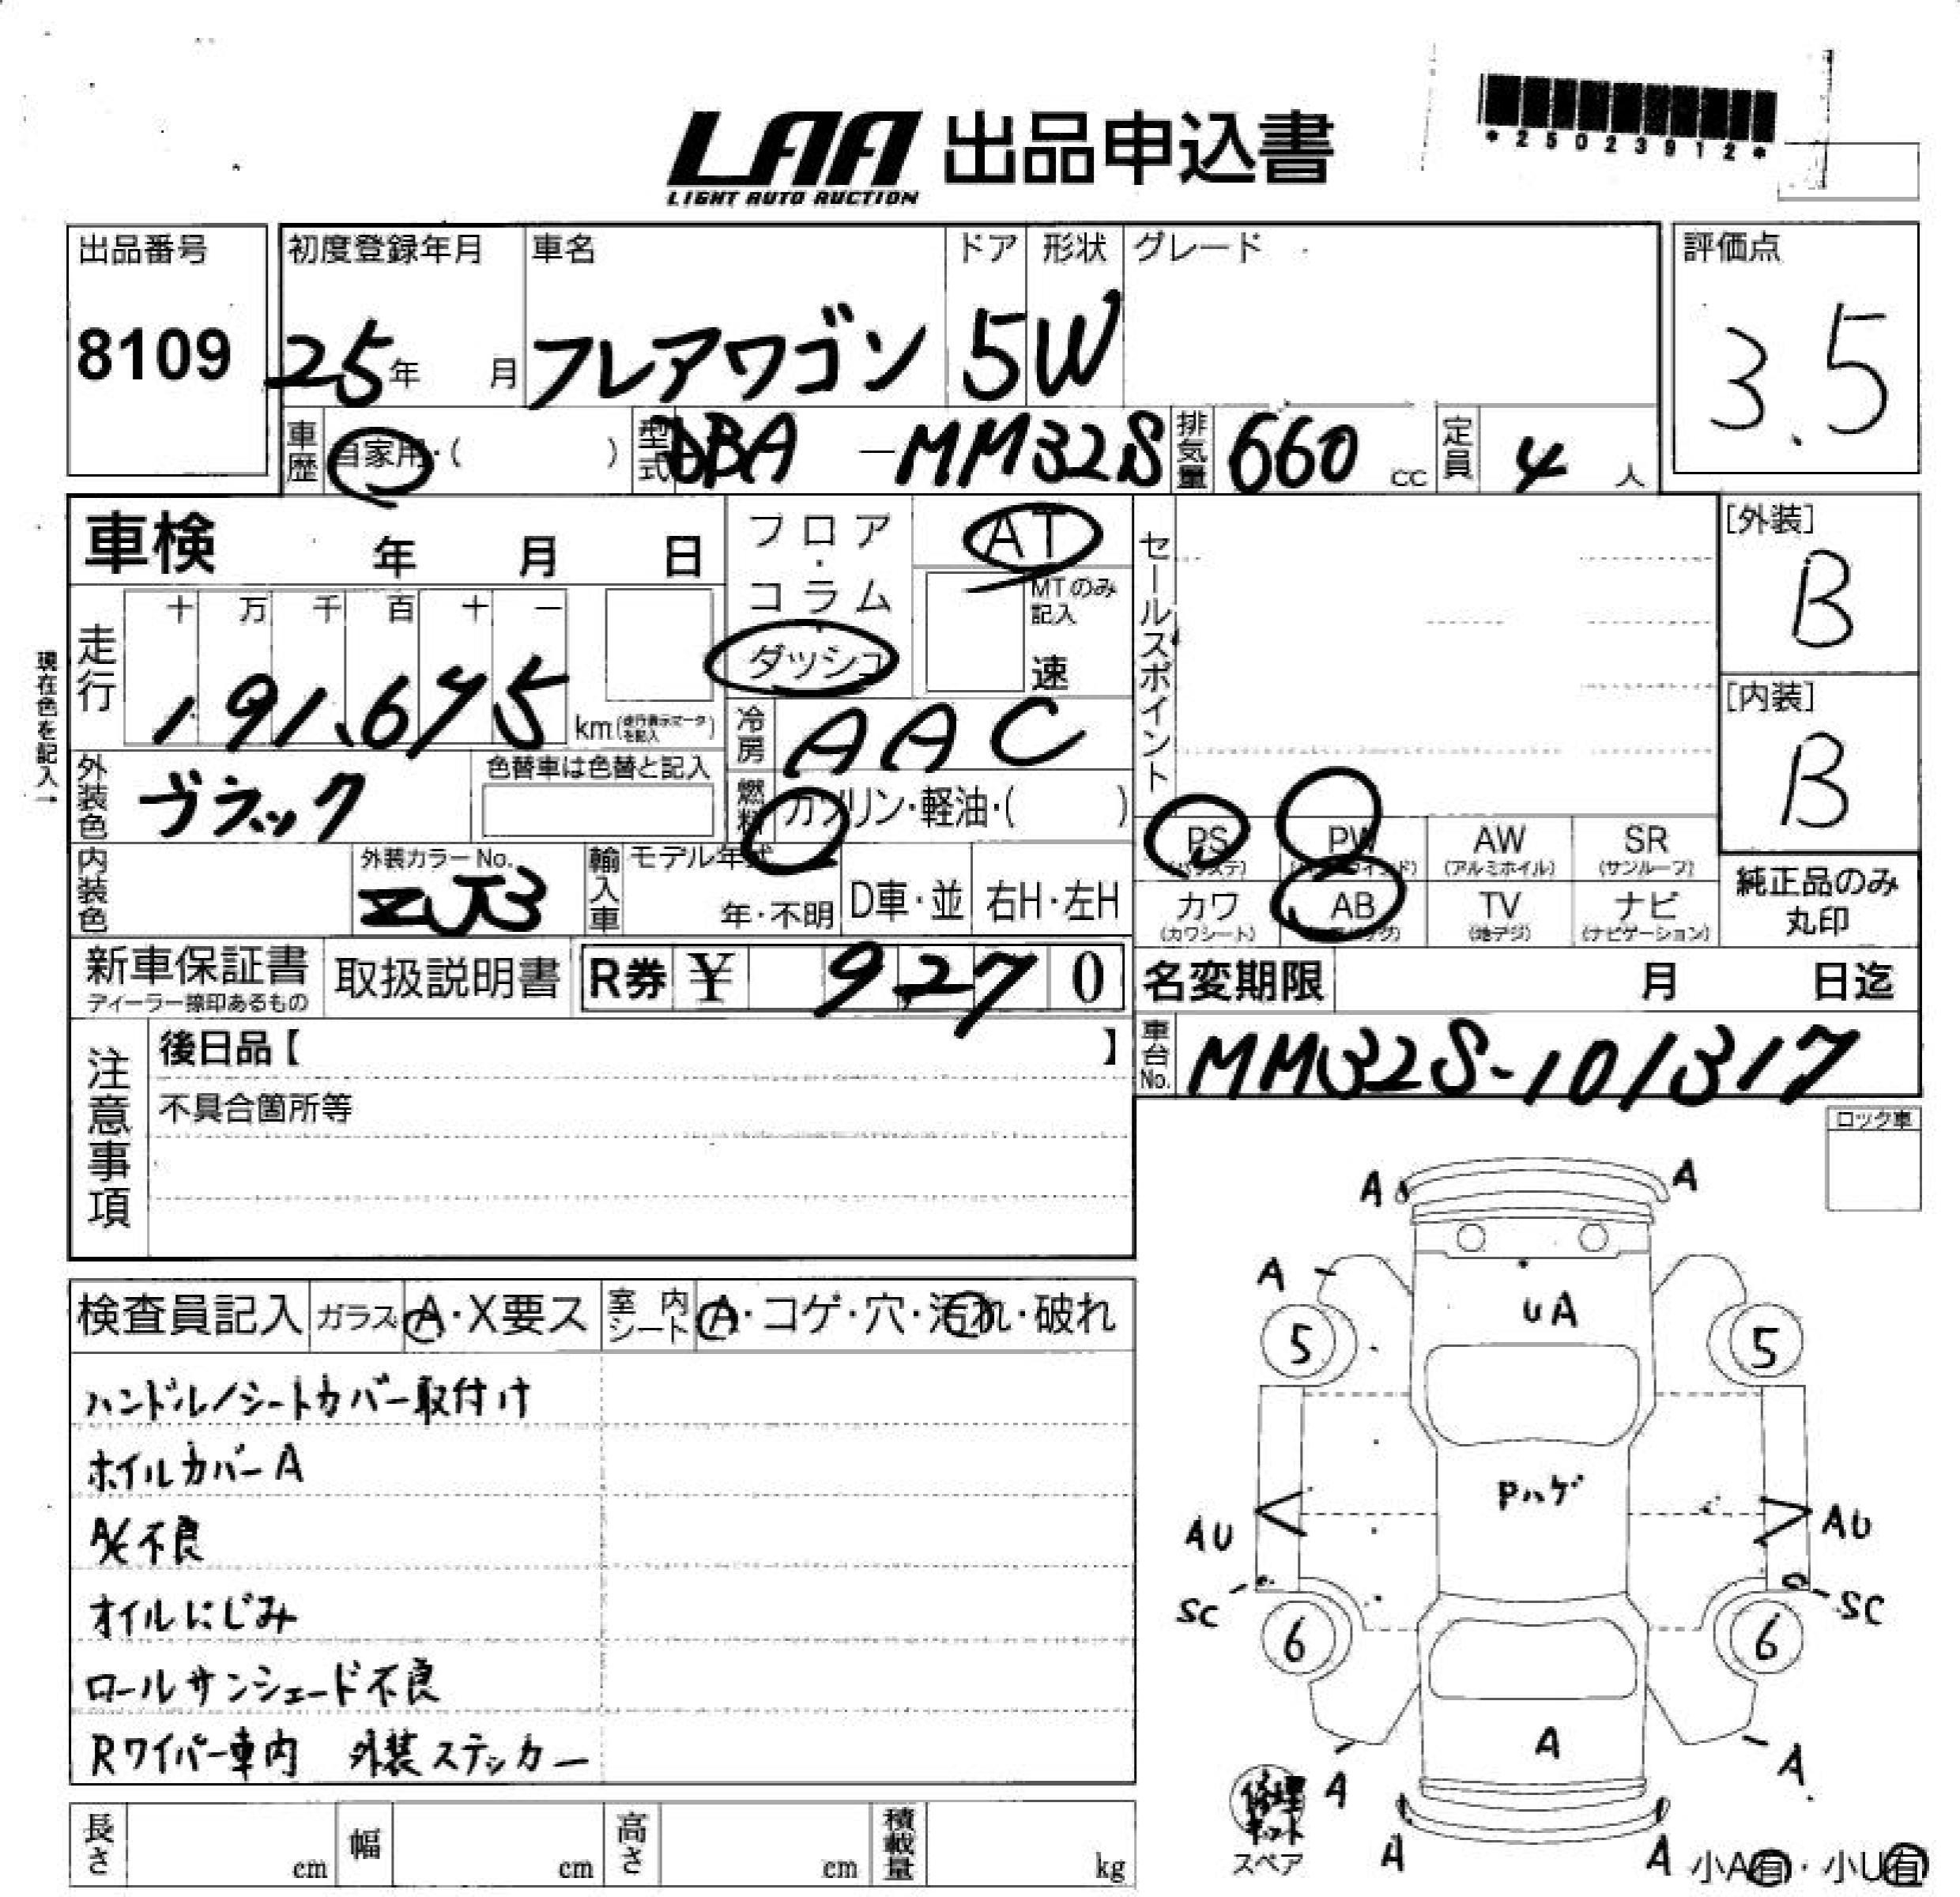 LAA 出品申込書
LIGHT AUTO AUCTION
*25023912*
出品番号
8109
初度登録年月
25年 月
車名
フレアワゴン
ドア
5
形状
W
グレード
評価点
3.5
車歴 自家用・( )
型式 DBA-MM32S
排気量 660 cc
定員 4 人
車検 年 月 日
フロア・コラム・ダッシュ
AT
MTのみ記入
速
セールスポイント
[外装]
B
[内装]
B
現在色を記入→
走行
十 万 千 百 十 一
km(走行表示マータを記入)
冷房 AAC
外装色 ブラック
色替車は色替と記入
燃料 ガソリン・軽油・( )
PS (パワステ)
PW
AW (アルミホイル)
SR (サンルーフ)
カワ (カワシート)
AB
TV (地デジ)
ナビ (ナビゲーション)
純正品のみ
丸印
内装色
外装カラーNo.
ZJ3
輸入車
モデル年式
年・不明
D車・並
右H・左H
新車保証書
ディーラー捺印あるもの
取扱説明書
R券 ¥ 9,270
名変期限 月 日迄
車台No. MM32S-101317
注意事項
後日品【 】
不具合箇所等
ロック車
検査員記入
ガラス A・X要ス
室内シート A・コゲ・穴・汚れ・破れ
ハンドル/シートカバー取付け
ホイルカバーA
A/C不良
オイルにじみ
ロールサンシェード不良
Rワイパー車内 外装ステッカー
長さ cm
幅 cm
高さ cm
積載量 kg
A A
A
UA
5 5
Pハゲ
AU AU
SC SC
6 6
A
A A
修理キット
スペア
A A
小A有・小U有